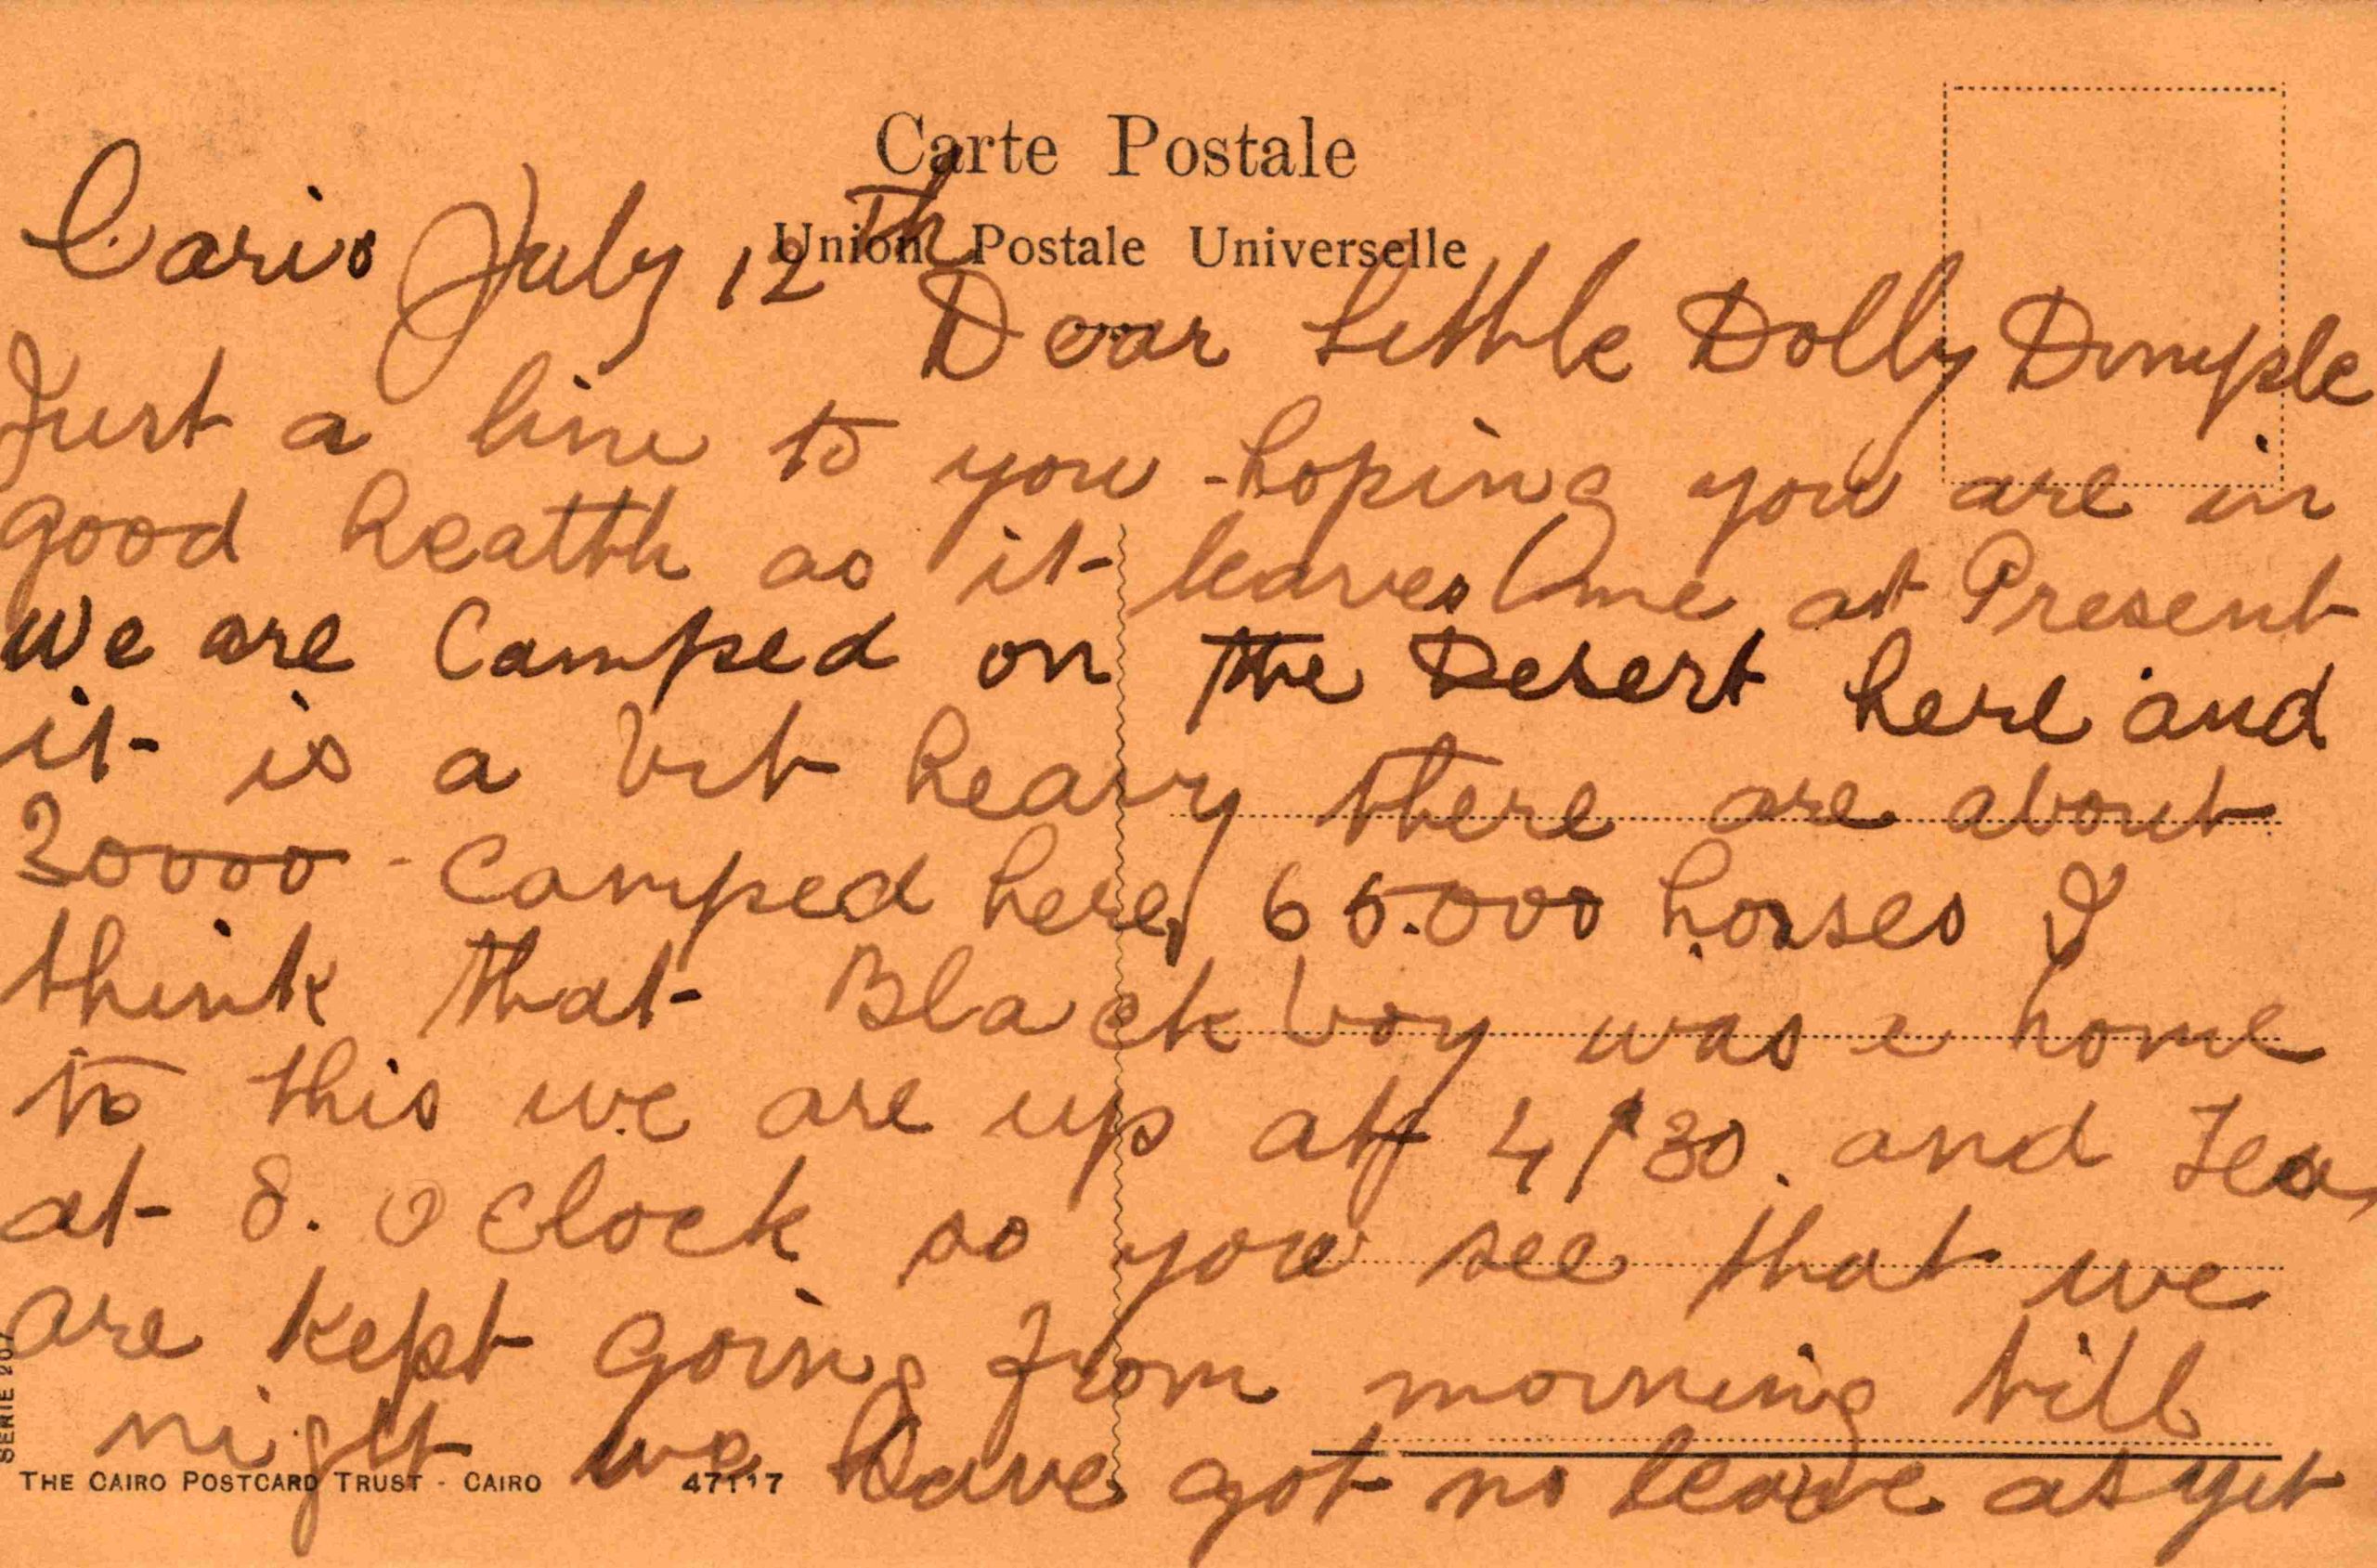 Carte Postale
Union Postale Universelle
Cario July 12th
Dear Little Dolly Dimple
Just a line to you hoping you are in
good heatth as it leaves me at Present
We are Camped on the Desert here and
it is a bit heavy there are about
30000 - Camped here 65.000 horses I
think that Black boy was a home
to this we are up at 4/30. and Tea
at 8. O Clock so you see that we
are kept going from morning till
night we have got no leave as yet
SERIE 207
THE CAIRO POSTCARD TRUST - CAIRO 47117